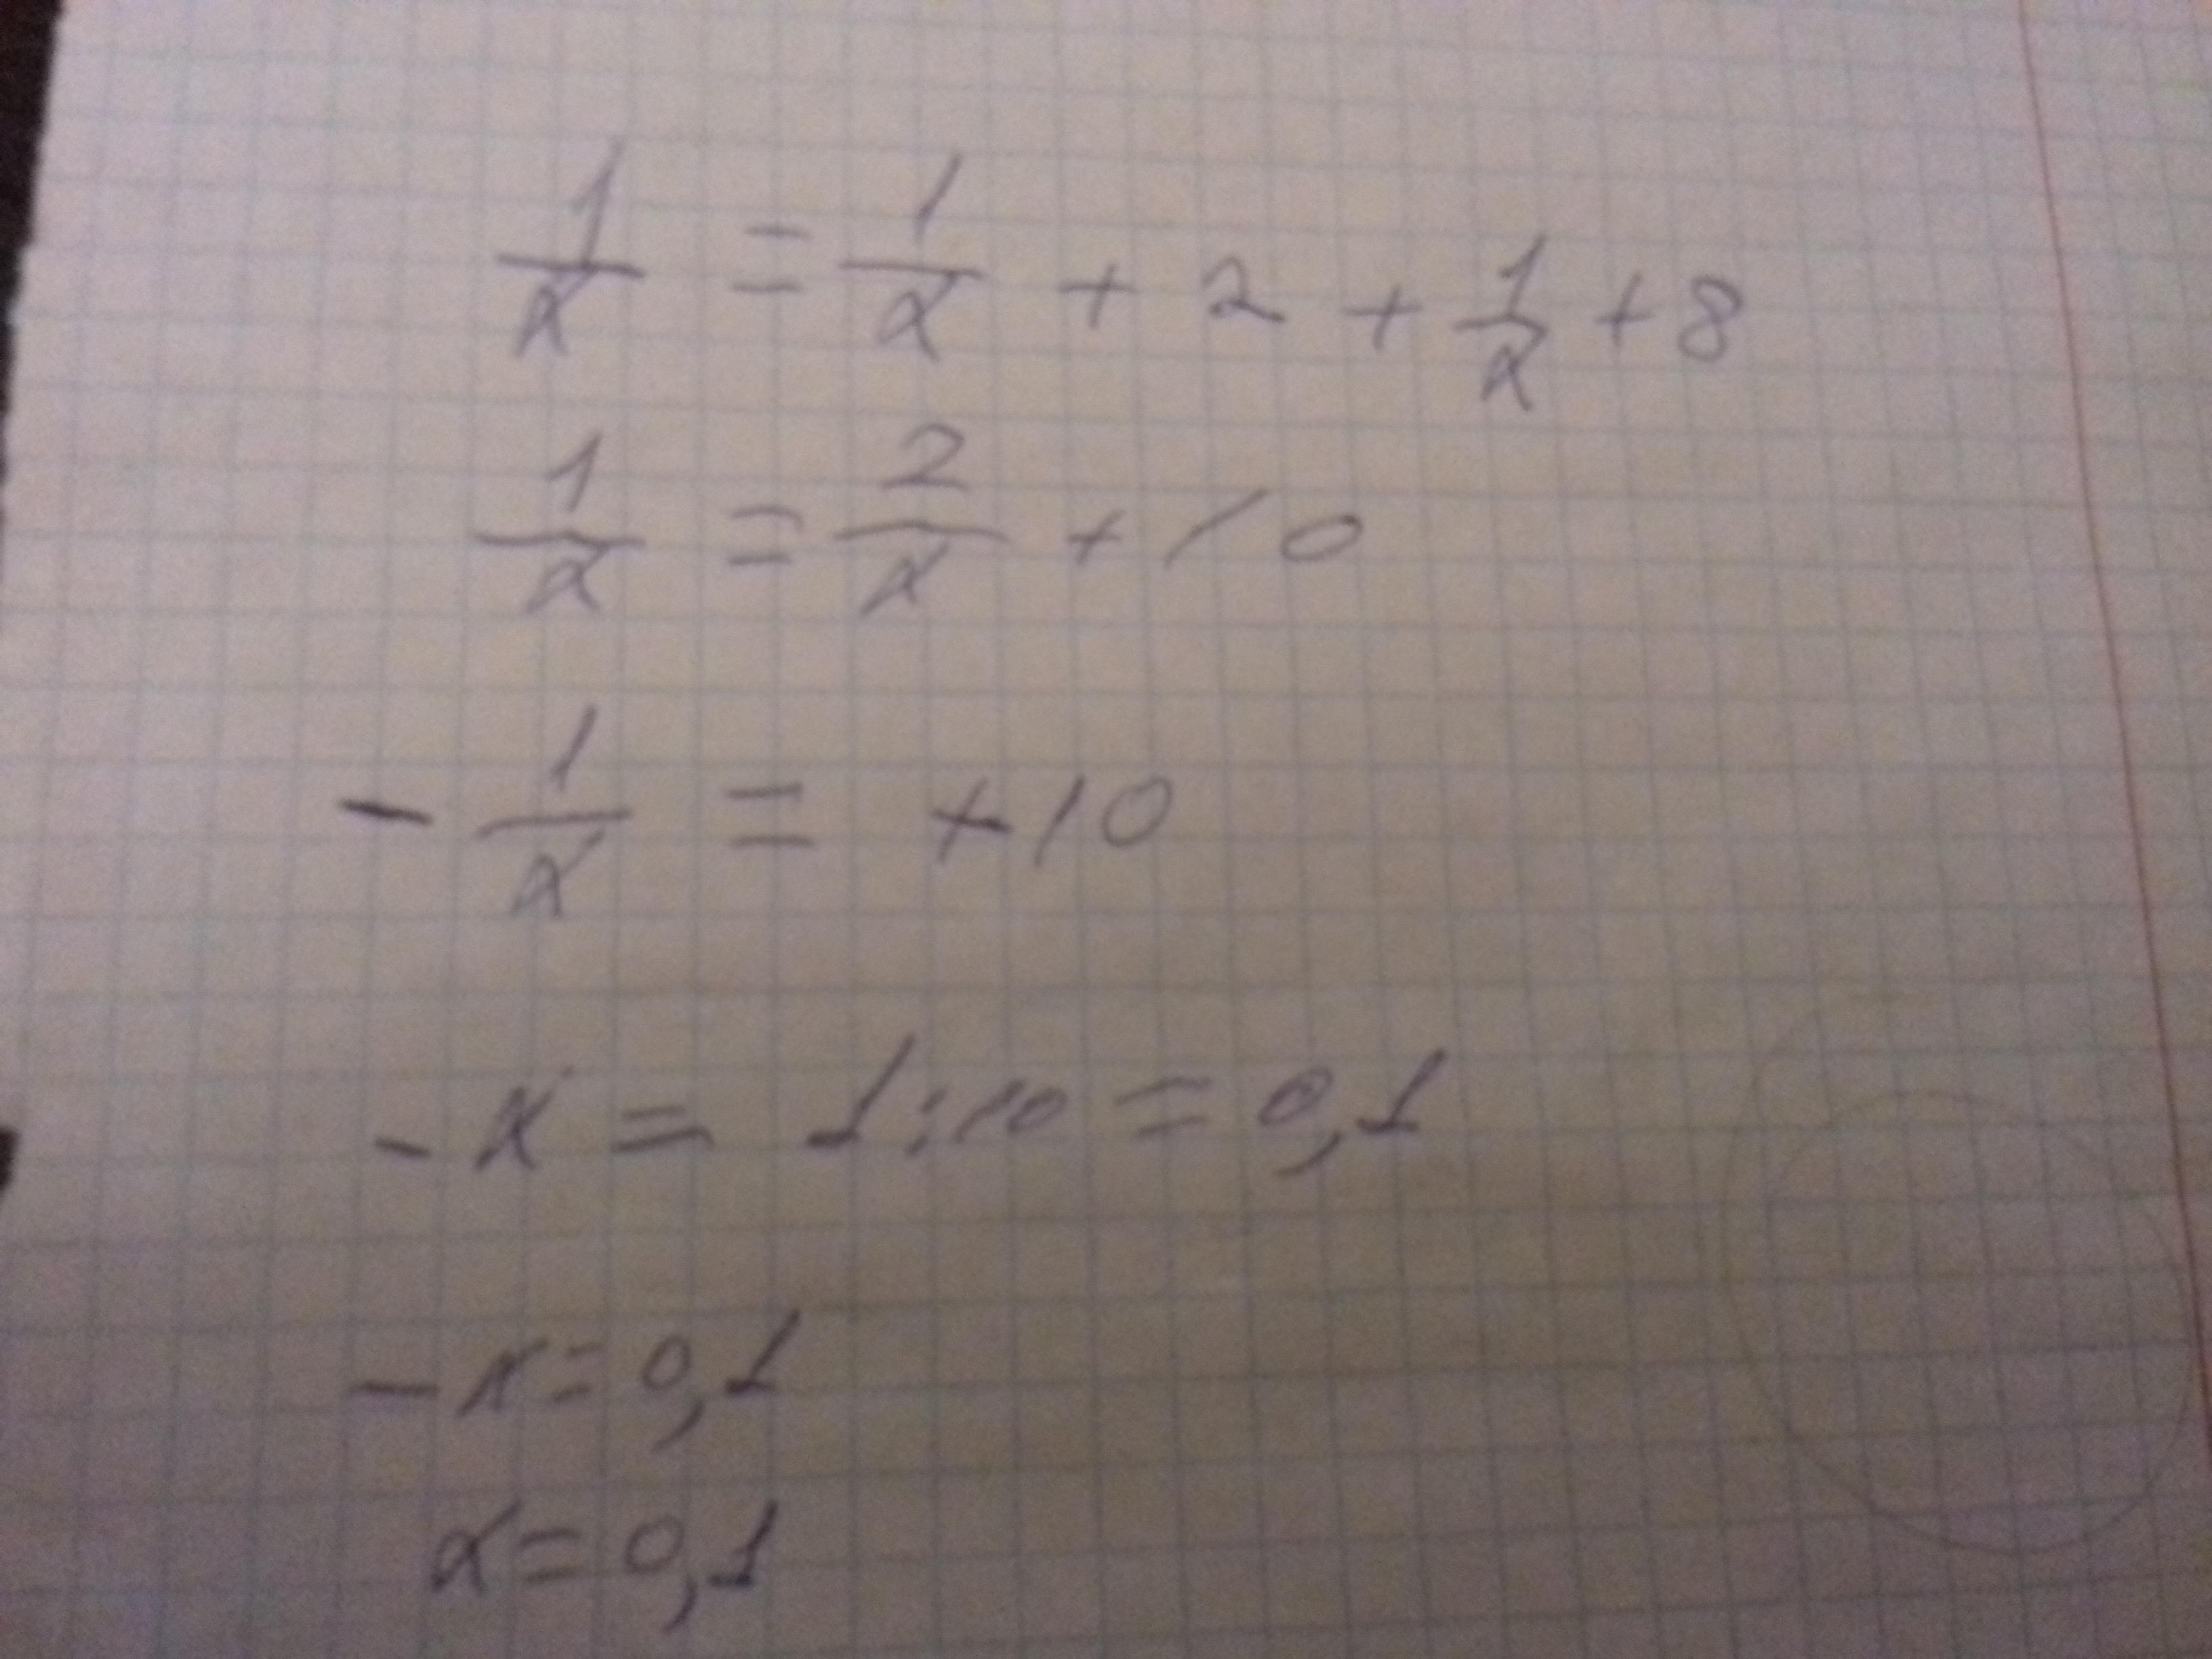 1/x = 1/x + 2 + 1/x + 8
1/x = 2/x + 10
- 1/x = +10
- x = 1:10 = 0,1
- x = 0,1
x = 0,1